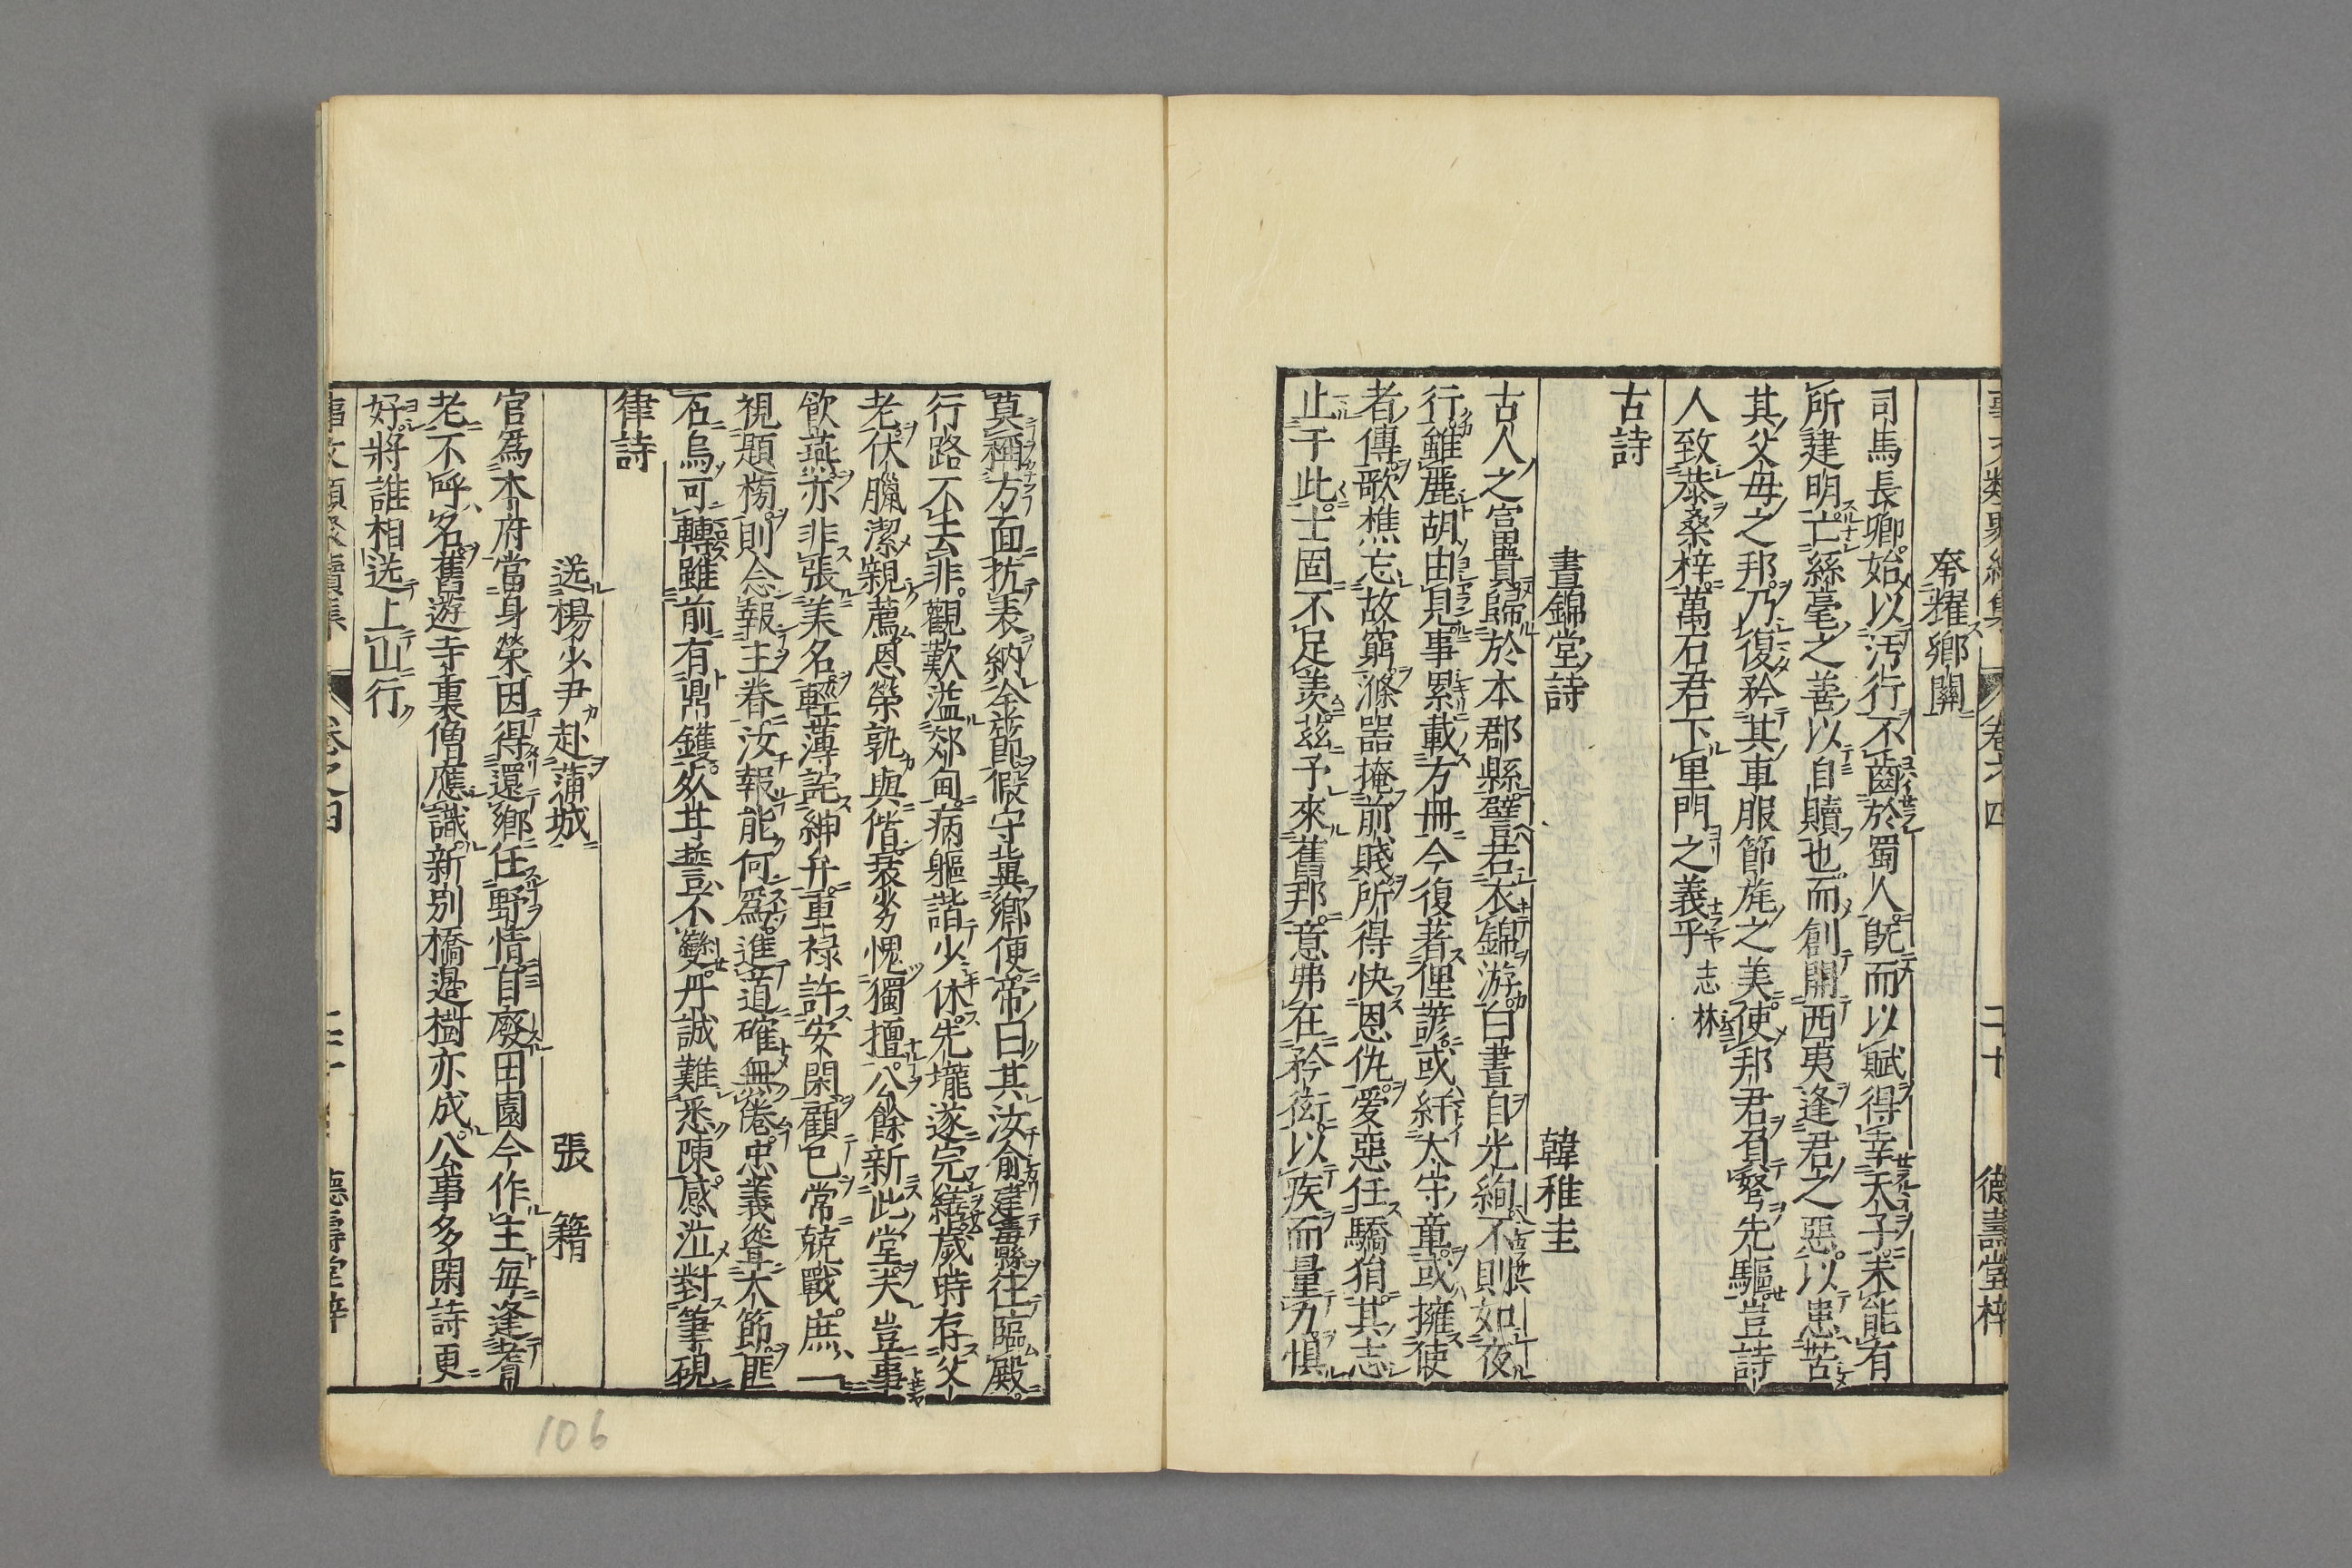 奉耀鄉關
司馬長卿始以汚行不齒於蜀人旣而以賦得幸天子未能有
所建明亡絲毫之善以自贖也而創開西夷逢君之惡以患苦
其父毋之邦乃復矜其車服節旄之美使邦君負弩先驅豈詩
人致恭桑梓萬石君下里門之義乎 志林
古詩
晝錦堂詩 韓稚圭
古人之富貴歸於本郡縣譬若衣錦游白晝自光絢不則如夜
行雖麗胡由見事累載方冊今復著俚諺或紆太守章或擁使
者傳歌樵忘故窮滌器掩前賤所得快恩仇爱惡任驕狷其志
止于此士固不足羨茲予來舊邦意弗在矜衒以疾而量力懼
莫稱方面抗表納金節假守冀鄉便帝曰其汝俞建纛縣往臨殿
行路不去非觀歎溢郊甸病軀諧少休先壠遂完繕歲時存父
老伏臘潔親薦恩榮孰與偕衰劣愧獨擅公餘新此堂夫豈事
飮燕亦非張美名輕薄詫紳弁重禄許安閑顧已常兢戰庶一
視題榜則念報主眷汝報能何爲進道確無倦忠義聳大節匪
石烏可轉雖前有鼎鑊𣦸耳誓不變丹誠難悉陳感泣對筆硯
律詩
送楊少尹赴蒲城 張 籍
官爲本府當身榮因得還鄉任野情自廢田園今作主每逢耆
老不呼名舊遊寺裏僧應識新別橋邉樹亦成公事多閑詩更
好將誰相送上山行
卷之四
德壽堂梓